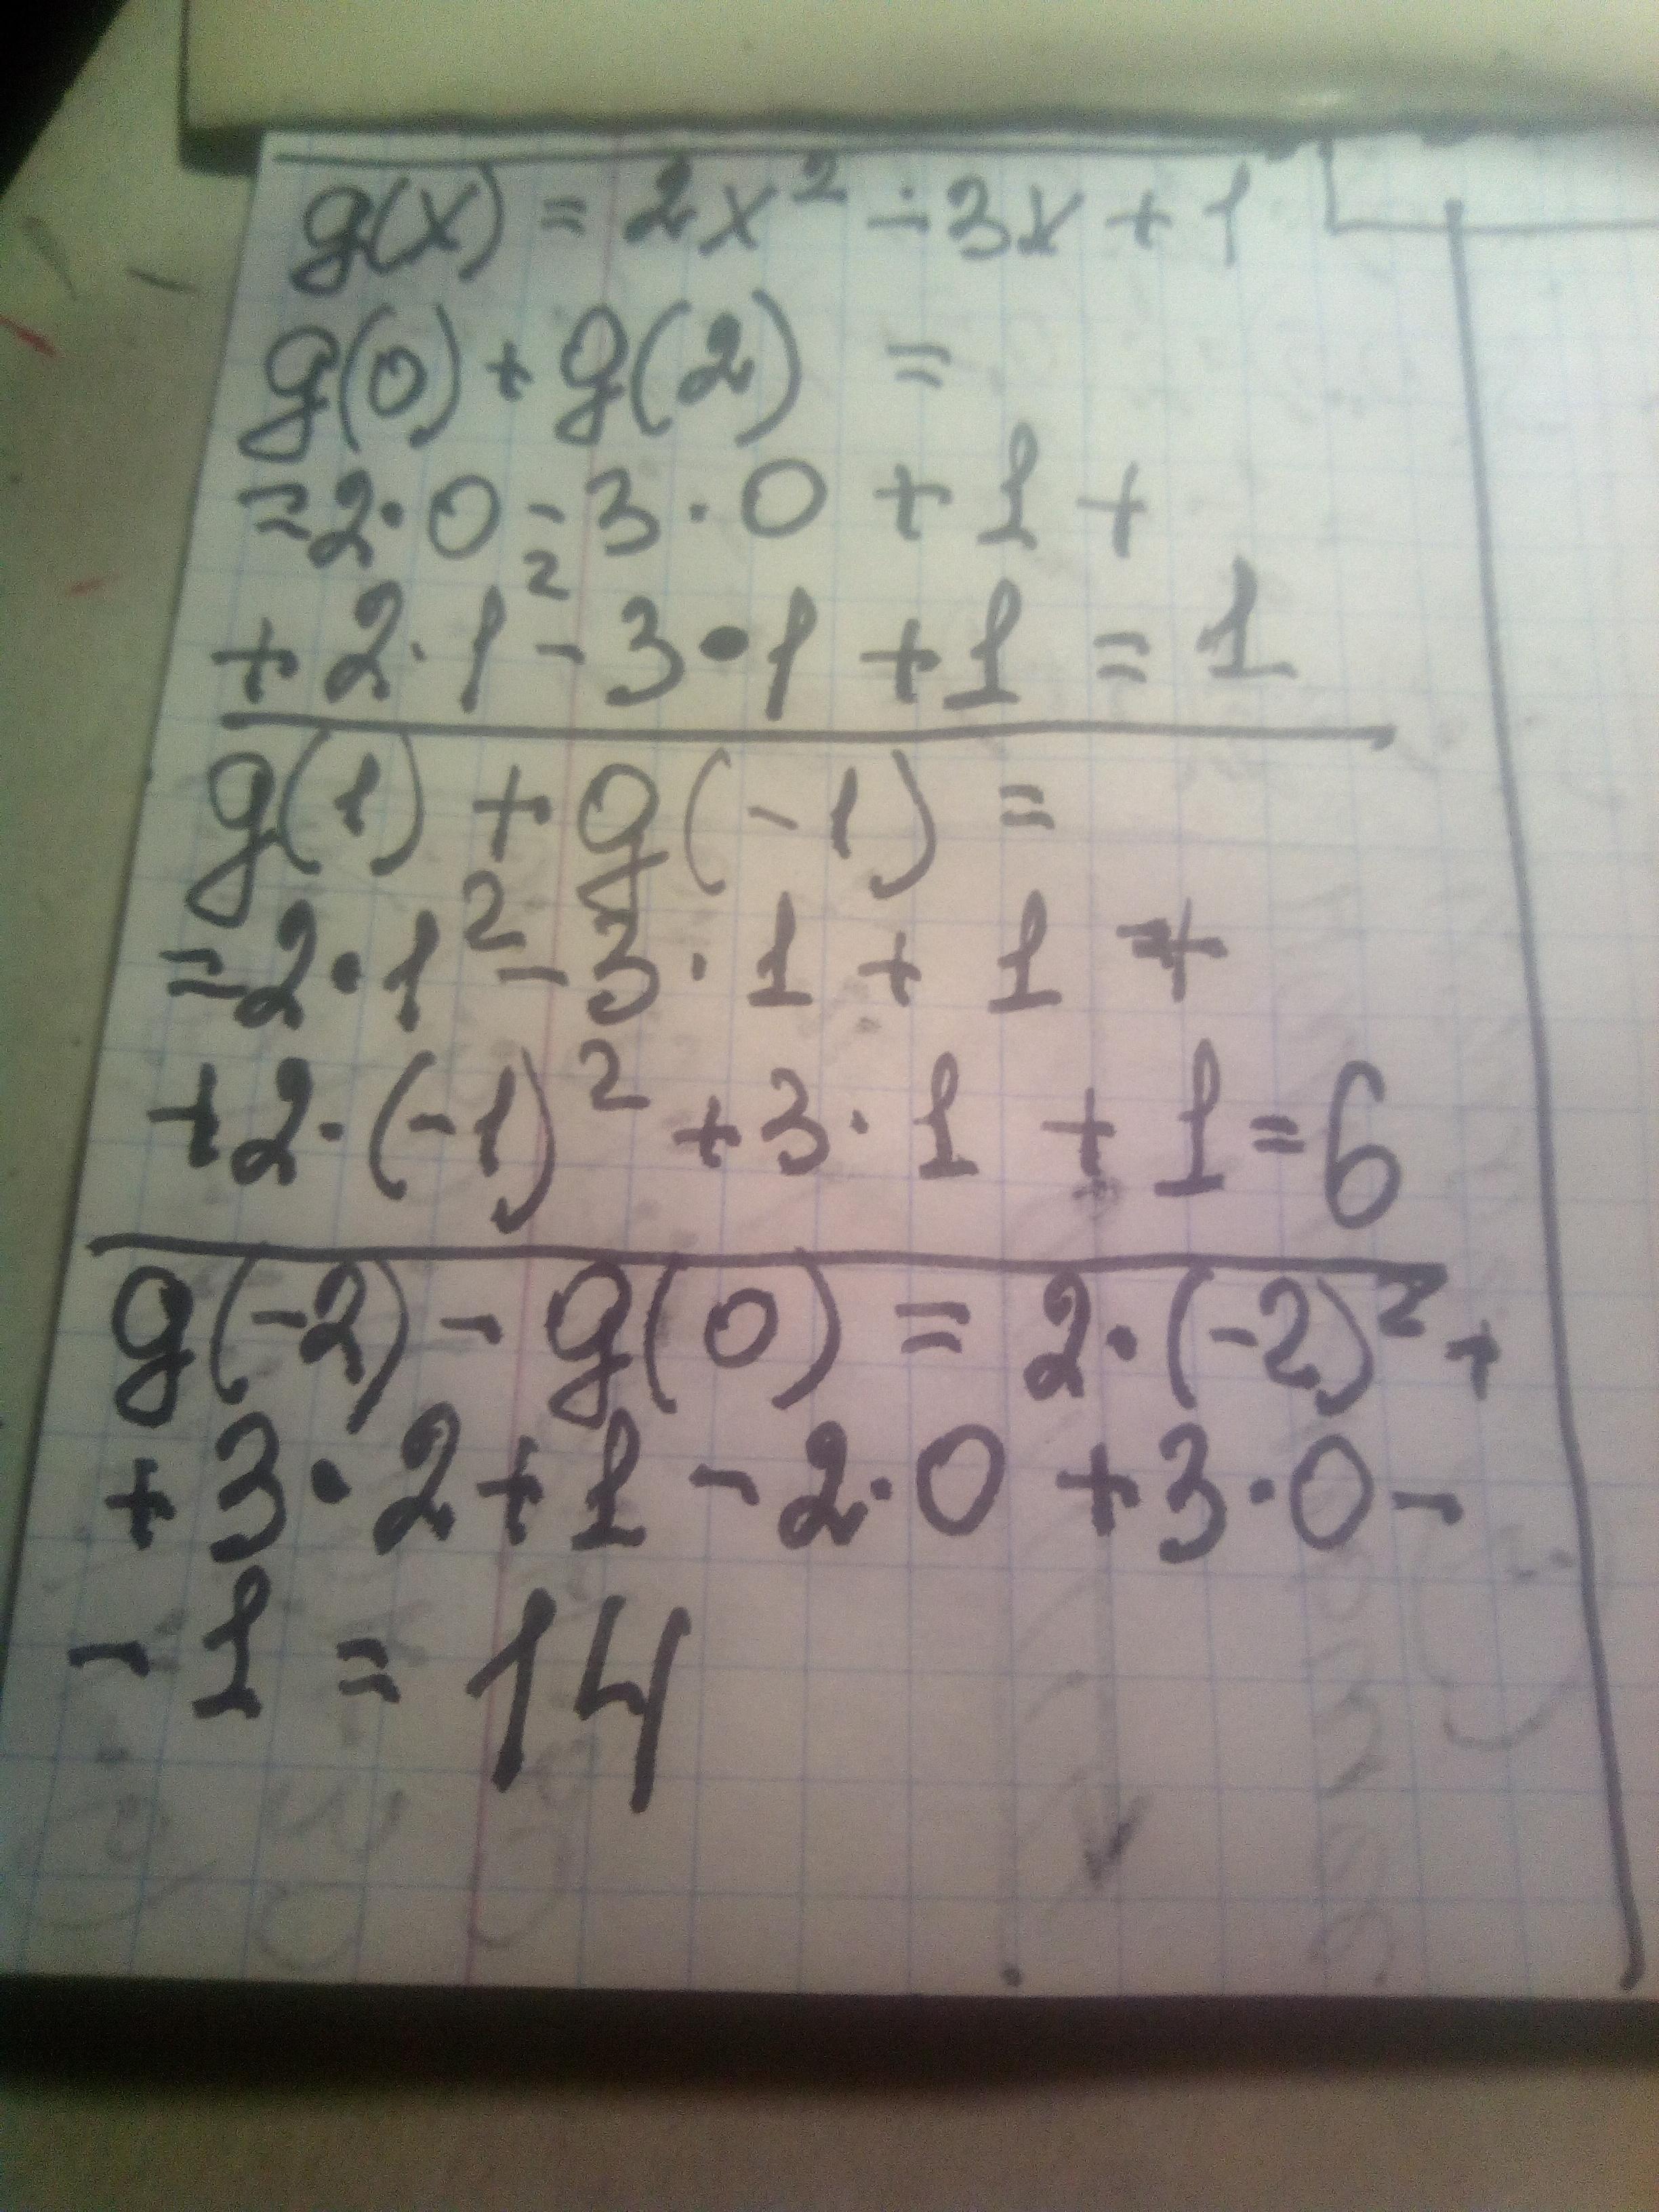 g(x) = 2x² - 3x + 1
g(0) + g(2) =
= 2·0 - 3·0 + 1 +
+ 2·1² - 3·1 + 1 = 1
g(1) + g(-1) =
= 2·1² - 3·1 + 1 +
+ 2·(-1)² + 3·1 + 1 = 6
g(-2) - g(0) = 2·(-2)² +
+ 3·2 + 1 - 2·0 + 3·0 -
- 1 = 14